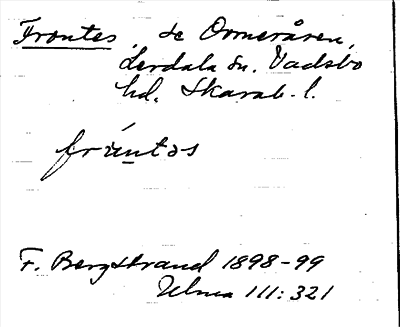 Frontes, se Ormeråren,
Lerdala sn. Vadsbo
hd. Skarab. l.
fröntəs
F. Bergstrand 1898-99
Ulma 111:321